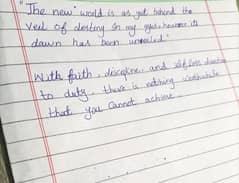 "The new world is as yet behind the
veil of destiny. In my eyes, however, its
dawn has been unveiled"
With faith, discipline, and selfless devotion
to duty, there is nothing worthwhile
that you cannot achieve.